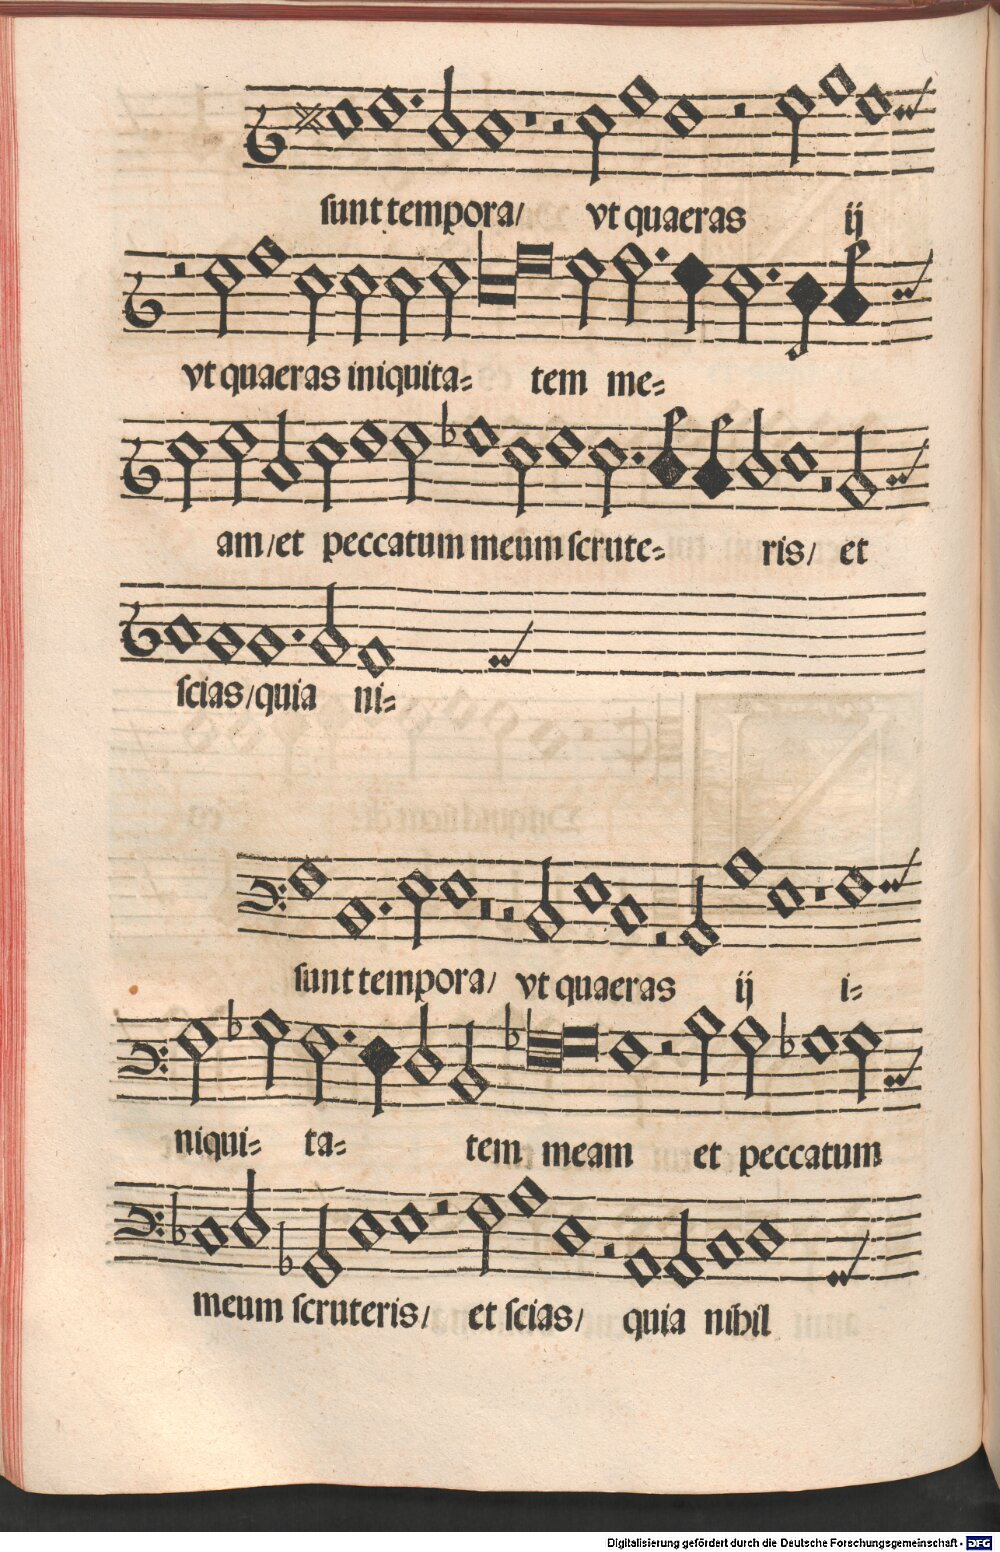 sunt tempora/ vt quaeras ij
vt quaeras iniquita= tem me=
am/et peccatum meum scrute= ris/ et
scias/quia ni=
sunt tempora/ vt quaeras ij i=
niqui= ta= tem meam et peccatum
meum scruteris/ et scias/ quia nihil
Digitalisierung gefördert durch die Deutsche Forschungsgemeinschaft - DFG